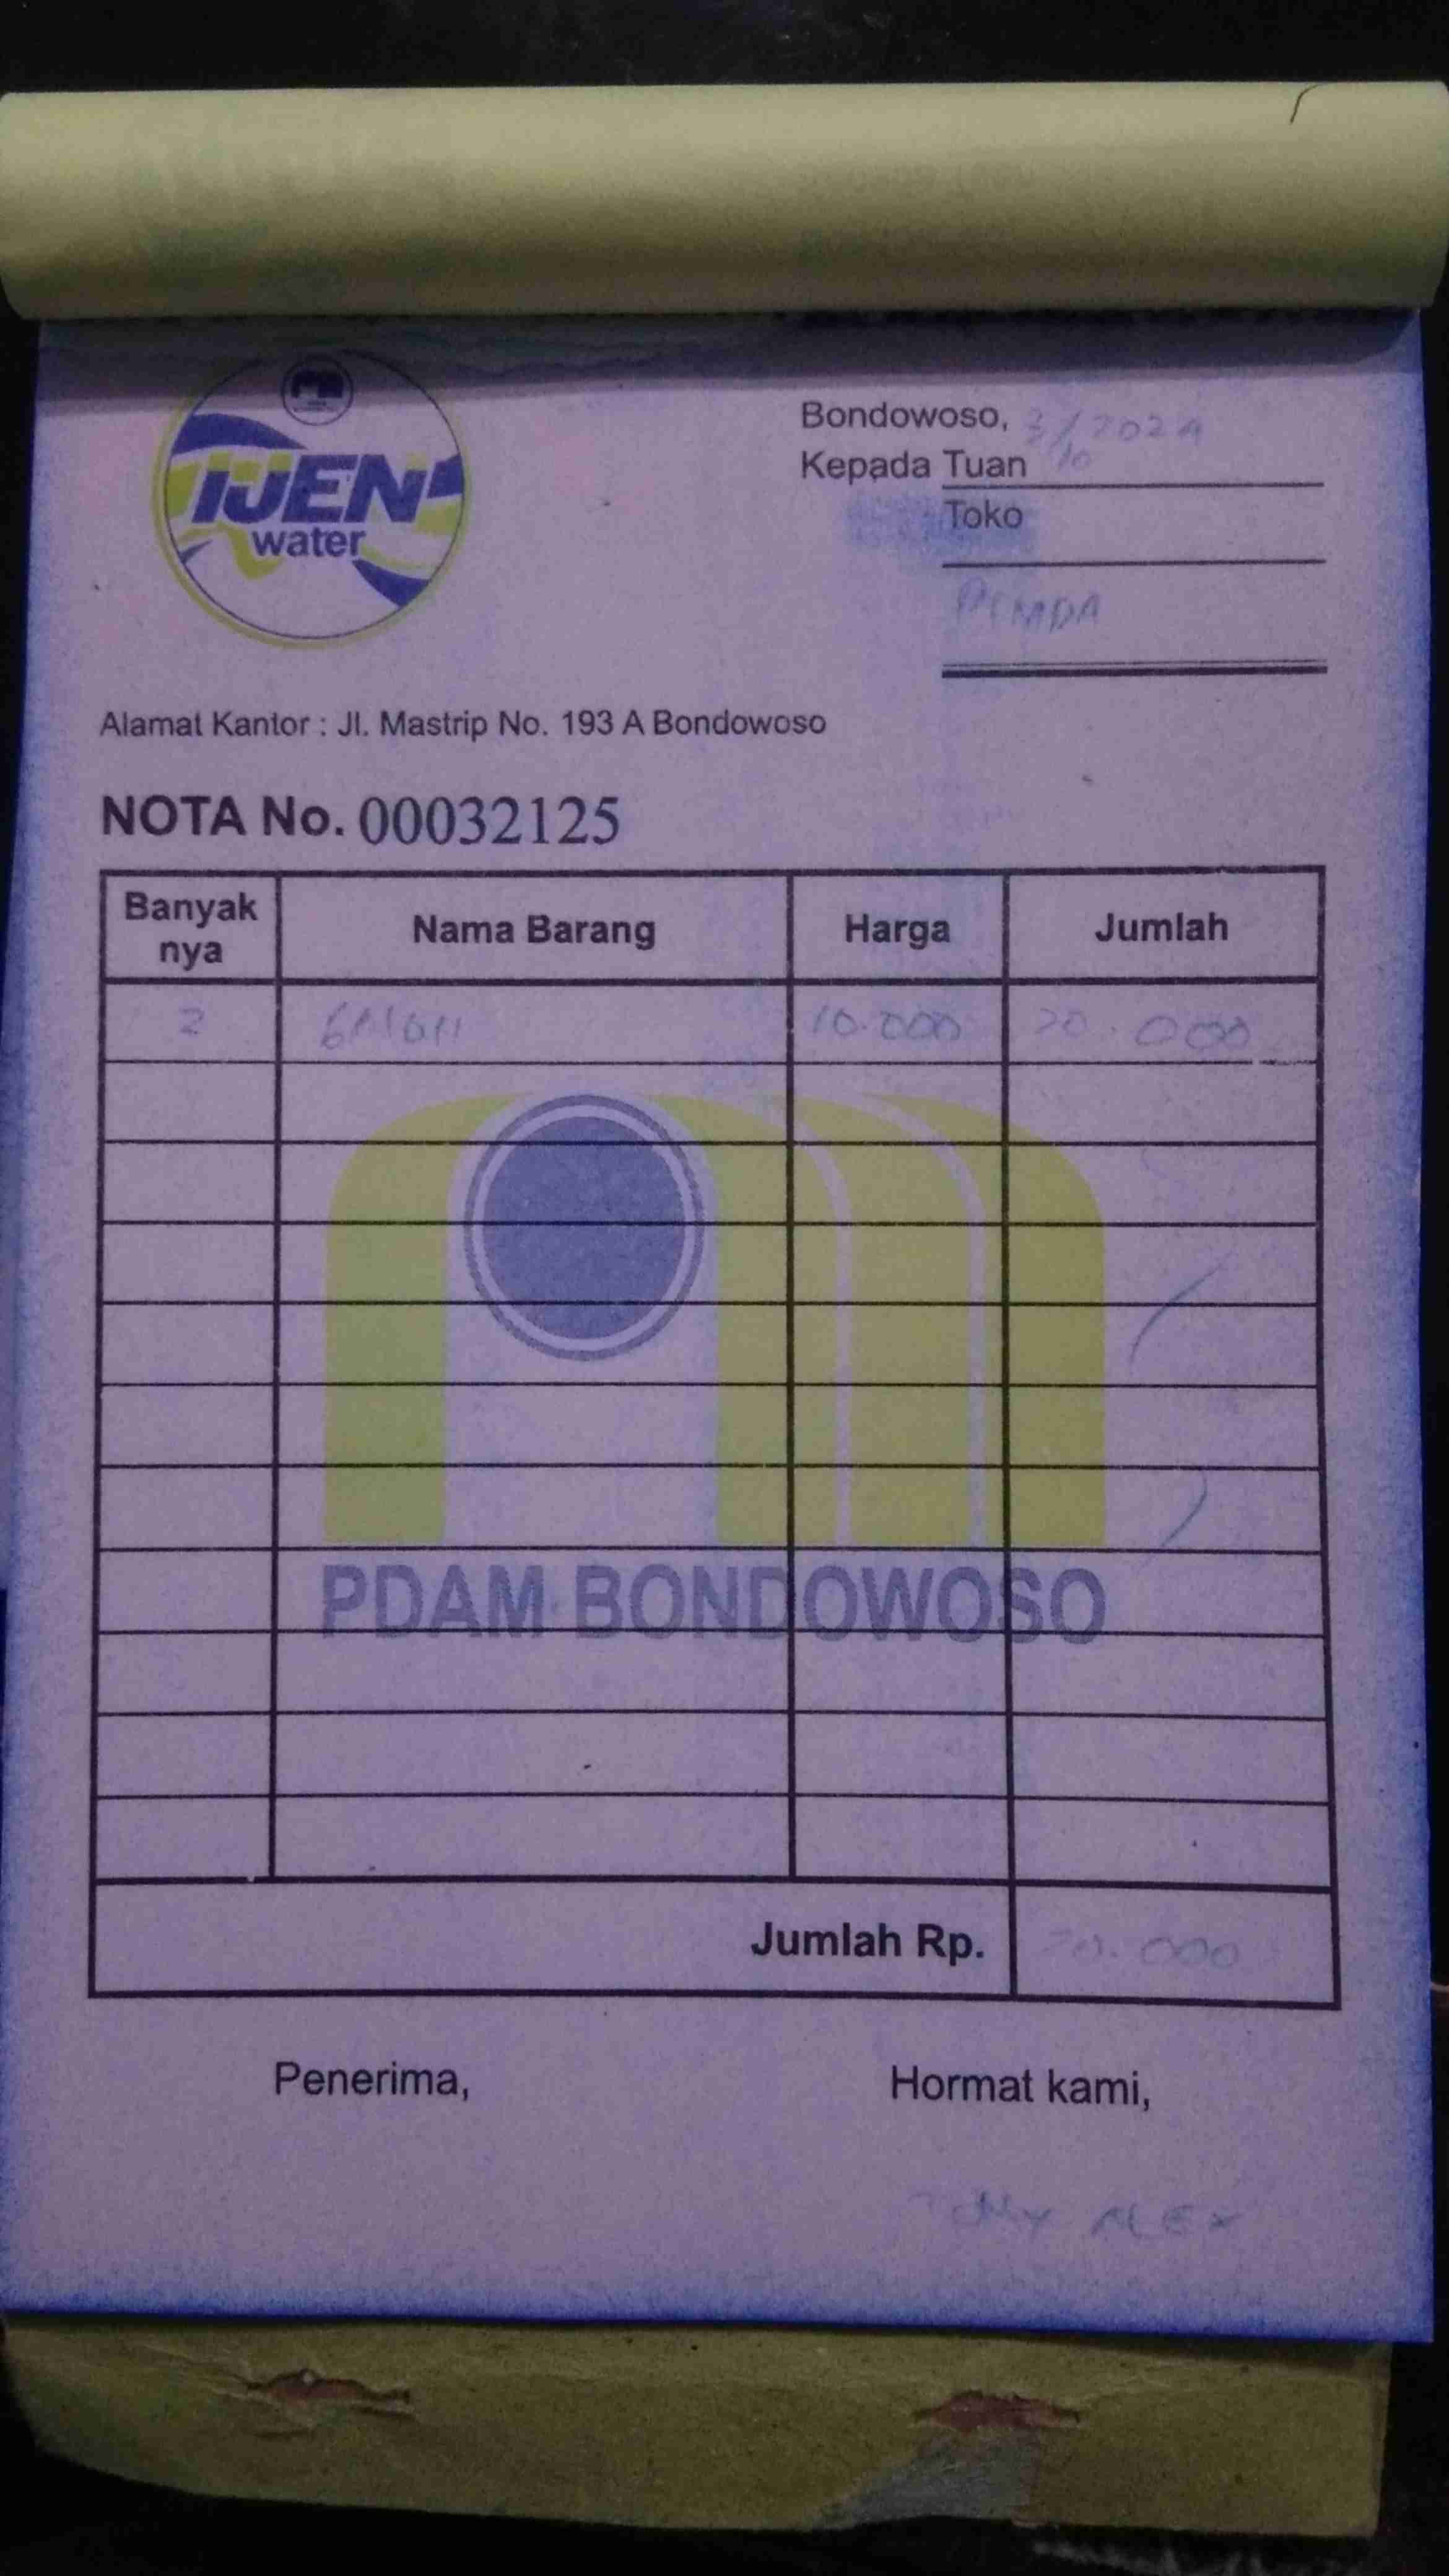 IJEN
water
Bondowoso, 3/10 2024
Kepada Tuan
Toko
PEMDA
Alamat Kantor : Jl. Mastrip No. 193 A Bondowoso
NOTA No. 00032125
Banyak nya Nama Barang Harga Jumlah
2 GALON 10.000 20.000
PDAM BONDOWOSO
Jumlah Rp. 20.000
Penerima, Hormat kami,
ALEX